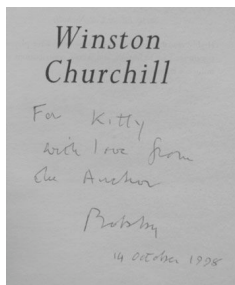 Winston
Churchill
For Kitty
with love from
the Author
Robsby
14 October 1998